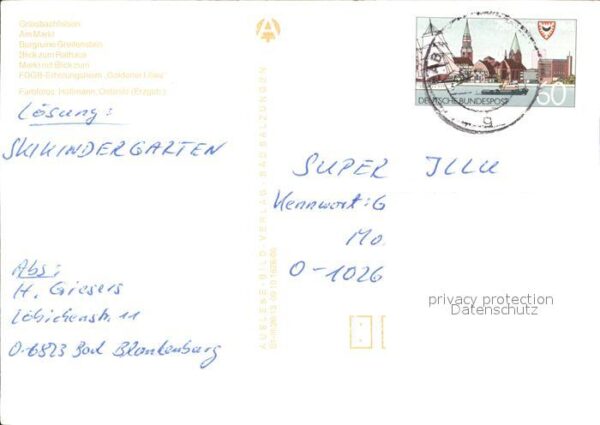 Greifensteine
Am Markt
Burgruine Greifenstein
Blick zum Rathaus
Markt mit Blick zum
FDGB-Erholungsheim „Goldener Löwe“
Farbfotos:
Lösung:
SKIKINDERGARTEN
Abs:
H. Giesers
Löbichenstr. 11
O-6823 Bad Blankenburg
AUSLESE-BILD-VERLAG · BAD SALZUNGEN
DEUTSCHE BUNDESPOST
60
SUPER ILLU
Kennwort: G
Mo.
O-1026
privacy protection
Datenschutz